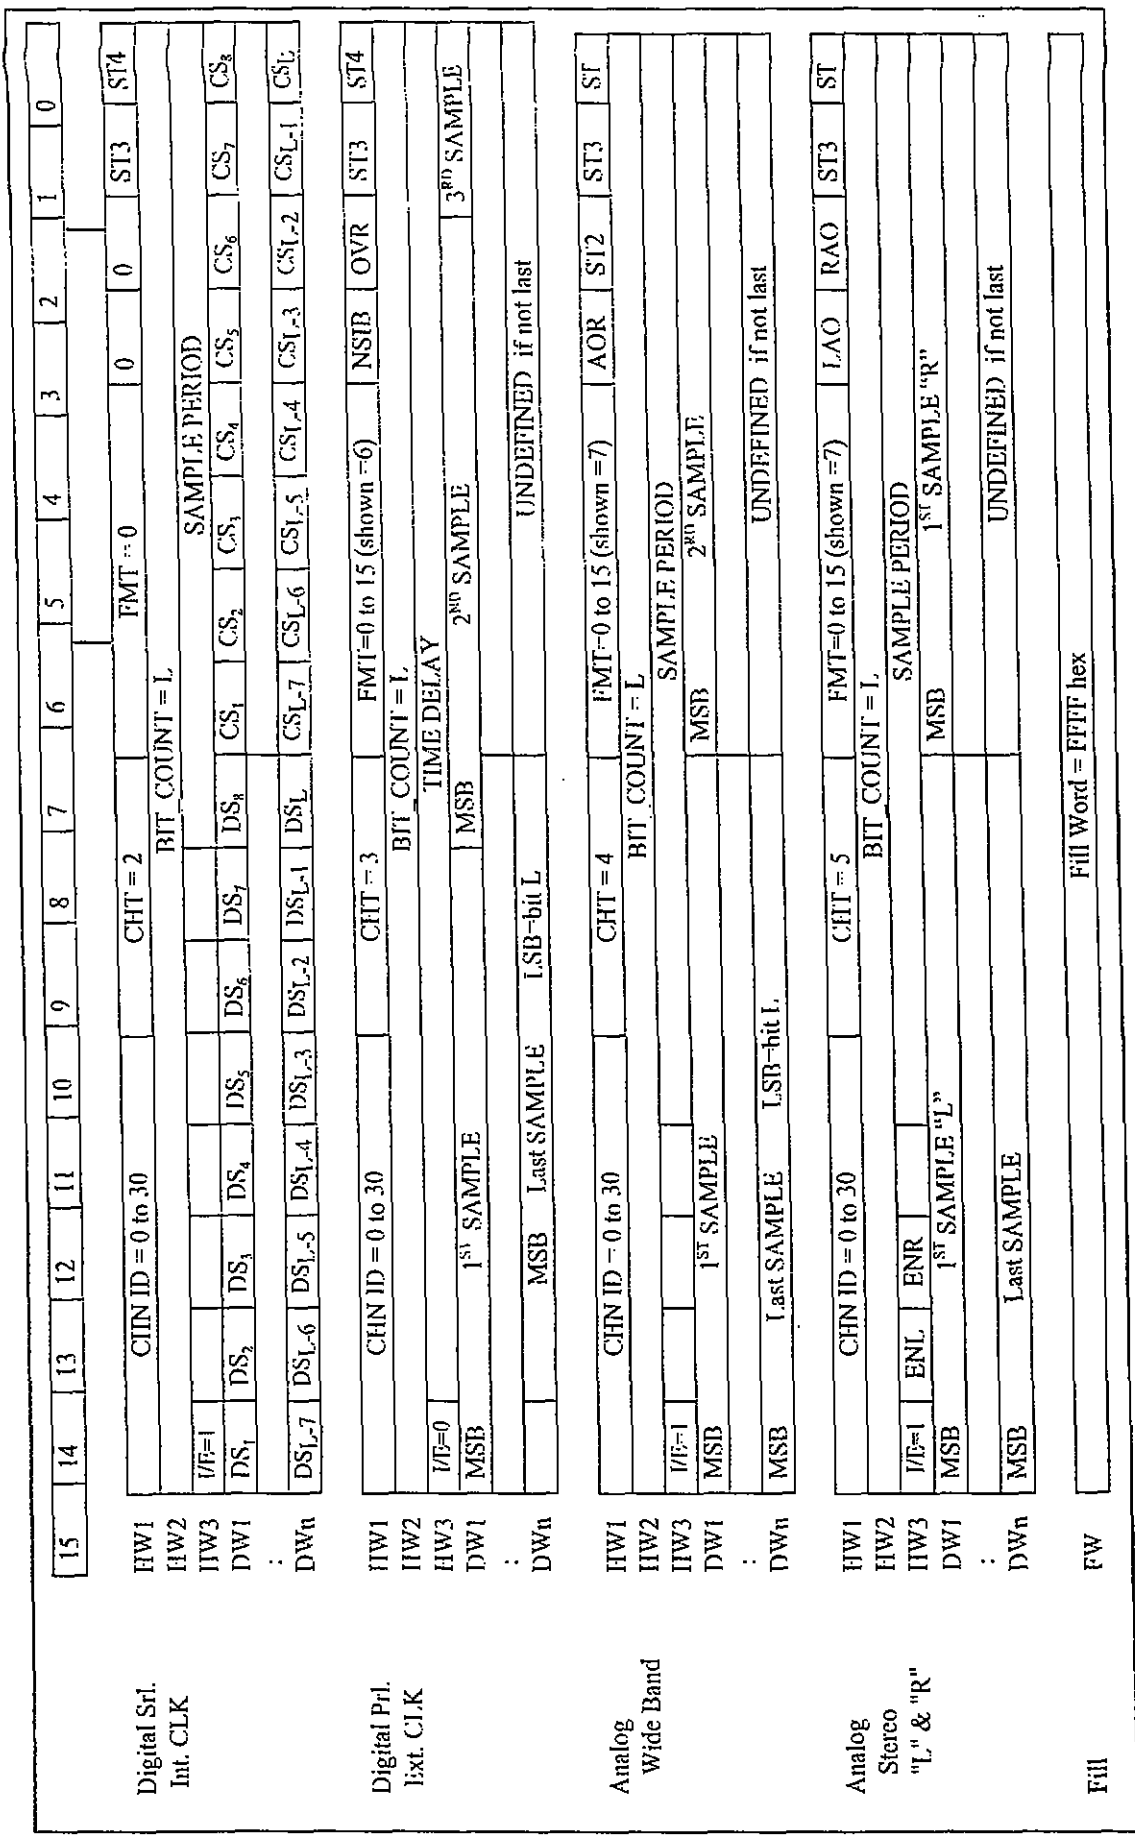 15 14 13 12 11 10 9 8 7 6 5 4 3 2 1 0
Digital Srl.
Int. CLK
HW1 CHN ID = 0 to 30 CHT = 2 FMT = 0 0 0 ST3 ST4
HW2 BIT COUNT = L
HW3 I/E=1 SAMPLE PERIOD
DW1 DS1 DS2 DS3 DS4 DS5 DS6 DS7 DS8 CS1 CS2 CS3 CS4 CS5 CS6 CS7 CS8
:
DWn DSL-7 DSL-6 DSL-5 DSL-4 DSL-3 DSL-2 DSL-1 DSL CSL-7 CSL-6 CSL-5 CSL-4 CSL-3 CSL-2 CSL-1 CSL
Digital Prl.
Ext. CLK
HW1 CHN ID = 0 to 30 CHT = 3 FMT=0 to 15 (shown =6) NSIB OVR ST3 ST4
HW2 BIT COUNT = L
HW3 I/E=0 TIME DELAY
DW1 MSB 1ST SAMPLE MSB 2ND SAMPLE 3RD SAMPLE
:
DWn MSB Last SAMPLE LSB=bit L UNDEFINED if not last
Analog
Wide Band
HW1 CHN ID = 0 to 30 CHT = 4 FMT=0 to 15 (shown =7) AOR ST2 ST3 ST
HW2 BIT COUNT = L
HW3 I/E=1 SAMPLE PERIOD
DW1 MSB 1ST SAMPLE MSB 2ND SAMPLE
:
DWn MSB Last SAMPLE LSB=bit L UNDEFINED if not last
Analog
Stereo
"L" & "R"
HW1 CHN ID = 0 to 30 CHT = 5 FMT=0 to 15 (shown =7) LAO RAO ST3 ST
HW2 BIT COUNT = L
HW3 I/E=1 ENL ENR SAMPLE PERIOD
DW1 MSB 1ST SAMPLE "L" MSB 1ST SAMPLE "R"
:
DWn MSB Last SAMPLE UNDEFINED if not last
Fill
FW Fill Word = FFFF hex